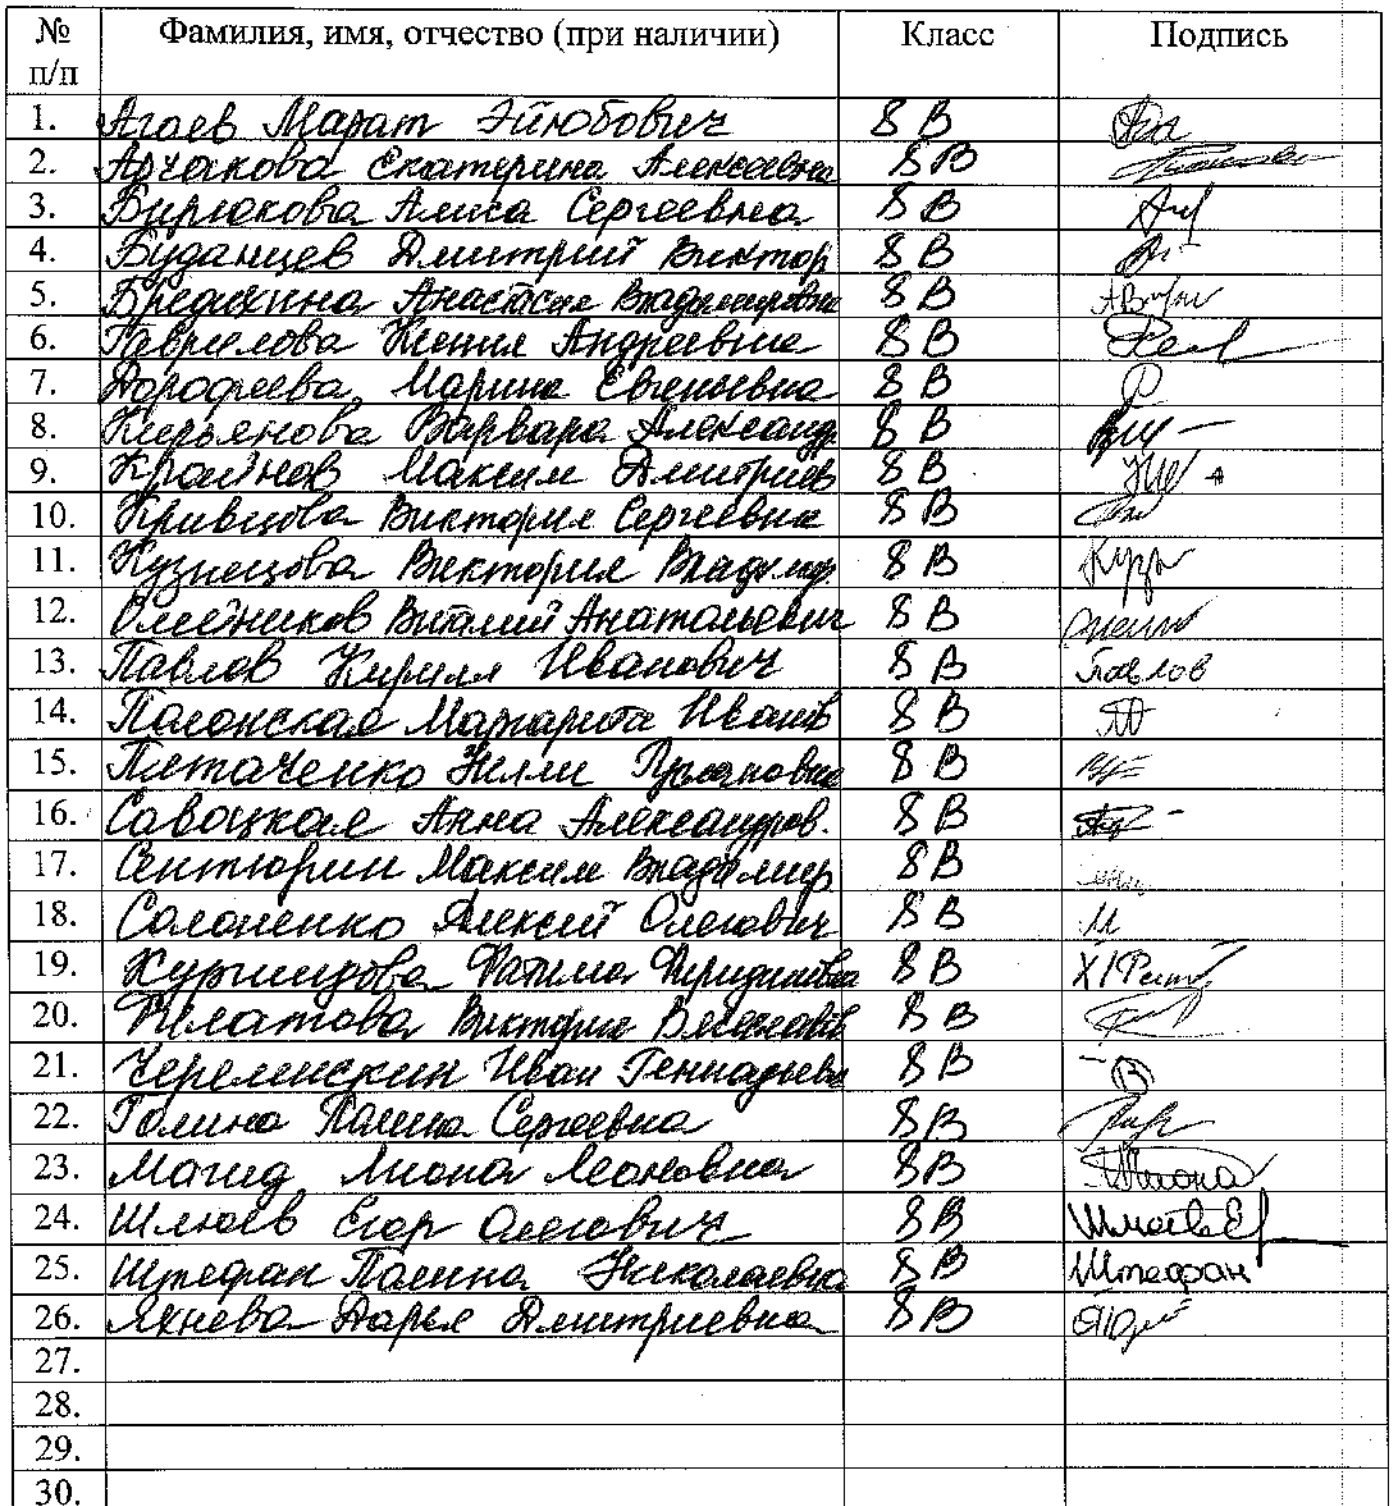 № Фамилия, имя, отчество (при наличии) Класс Подпись
п/п
1. Агаев Марат Эйюбович 8 В
2. Арчакова Екатерина Алексеевна 8 В
3. Бирюкова Алиса Сергеевна 8 В
4. Буданцев Дмитрий Виктор 8 В
5. Бредихина Анастасия Владимировна 8 В
6. Гаврилова Ксения Андреевна 8 В
7. Дорофеева Марина Евгеньевна 8 В
8. Кирьянова Варвара Александ. 8 В
9. Крайнов Максим Дмитриев 8 В
10. Кривцова Виктория Сергеевна 8 В
11. Кузнецова Виктория Владимир. 8 В
12. Олейников Виталий Анатольевич 8 В
13. Павлов Кирилл Иванович 8 В Павлов
14. Полонская Маргарита Иванов 8 В
15. Нелли 8 В
16. Савоцкая Анна Александров. 8 В
17. Сентюрин Максим Владимир 8 В
18. Солоненко Алексей Олегович 8 В
19. Хуршидова Фатима 8 В
20. Виктория 8 В
21. Черемискин Иван Геннадьеви 8 В
22. Голина Полина Сергеевна 8 В
23. Магид Лиона Леоновна 8 В
24. Шлюев Егор Олегович 8 В
25. Штефан Полина Николаевна 8 В Штефан
26. Яхнева Дарья Дмитриевна 8 В
27.
28.
29.
30.